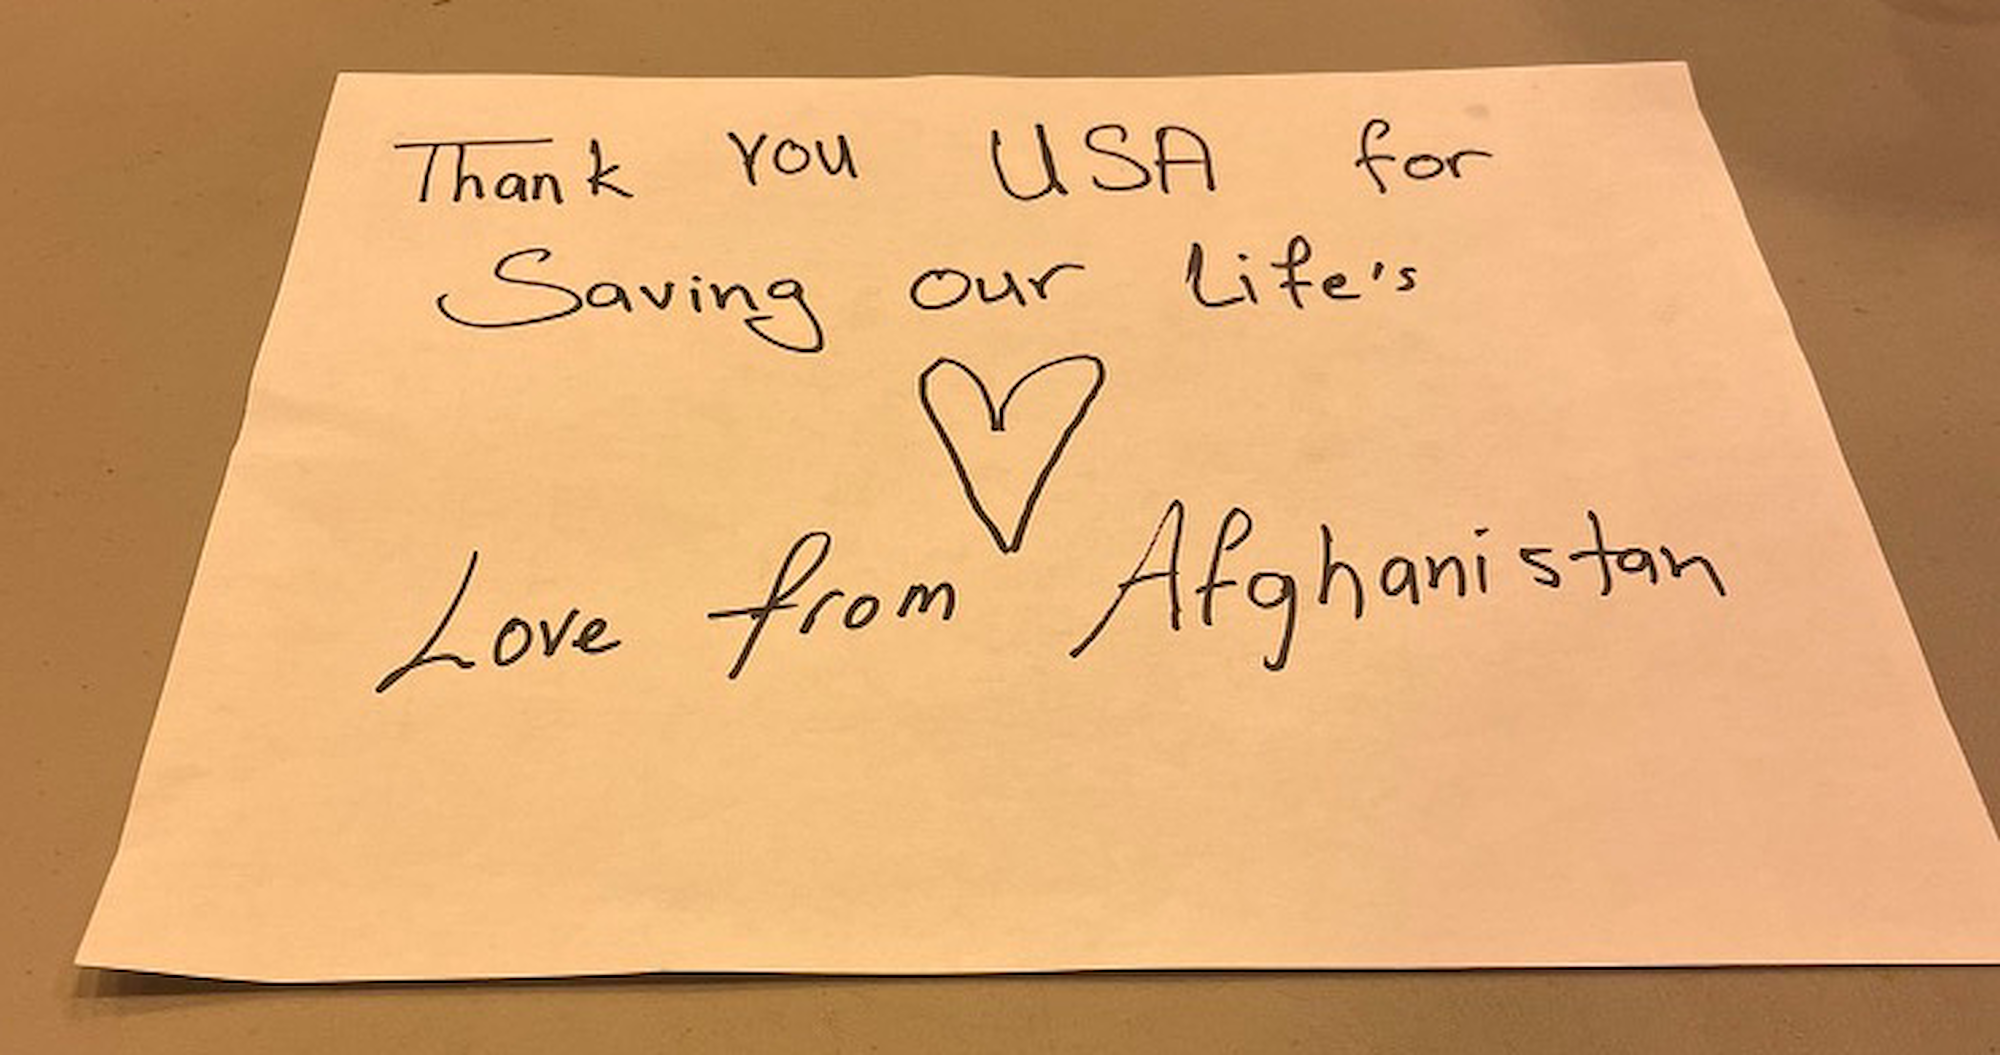 Thank you USA for
Saving our Life's
Love from Afghanistan